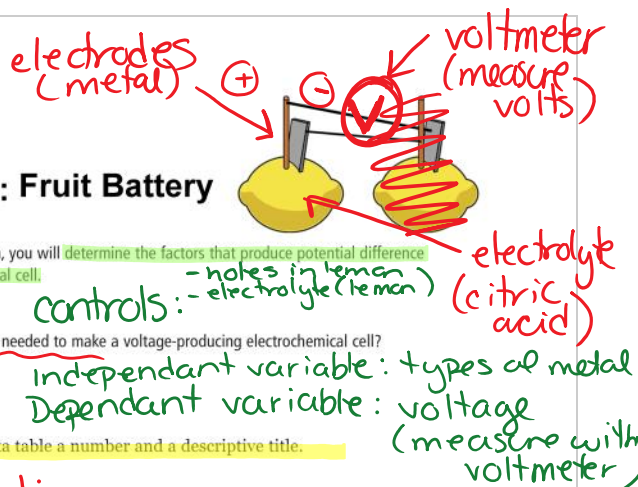 electrodes
(metal)
+
-
V
voltmeter
(measure
volts)
: Fruit Battery
, you will determine the factors that produce potential difference
al cell.
electrolyte
(citric
acid)
controls: - holes in lemon
- electrolyte (lemon)
needed to make a voltage-producing electrochemical cell?
independant variable: types of metal
Dependant variable: voltage
(measure with
voltmeter
ta table a number and a descriptive title.